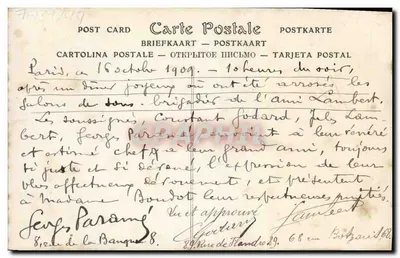 POST CARD Carte Postale POSTKARTE
BRIEFKAART — POSTKAART
CARTOLINA POSTALE — ОТКРЫТОЕ ПИСЬМО — TARJETA POSTAL
Paris, ce 16 octobre 1909. — 10 heures du soir,
après un dîner joyeux où ont été arrosés les
galons de sous-brigadier de l'ami Lambert.
Les soussignés, Constant Godard, Jules Lam-
bert, Georges Paramé à leur vénéré
et estimé chef, à leur grand ami, toujours
si juste et si dévoué, l'expression de leur
plus affectueux dévouement, et présentent
à Madame Boudot leur respectueuses amitiés.
Georges Paramé Vu et approuvé Lambert
8, rue de la Banque 8. Godard 68 rue Botzaris 68
29 Rue de Flandre 29.